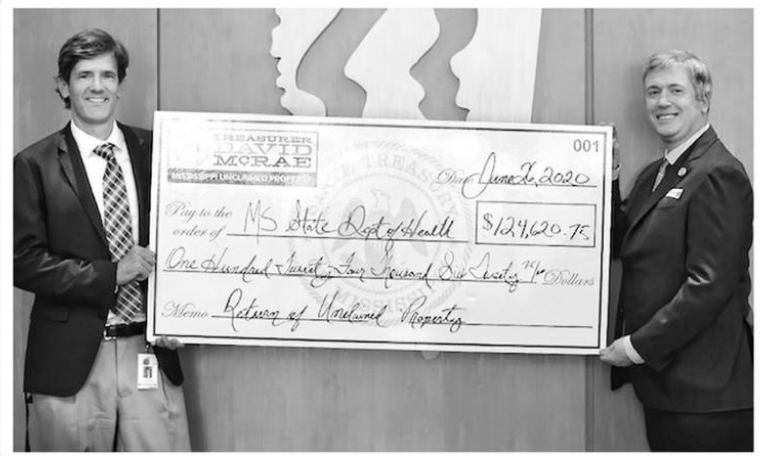 TREASURER
DAVID
McRAE
MISSISSIPPI UNCLAIMED PROPERTY
001
Date June 26, 2020
Pay to the
order of MS State Dept of Health
$124,620.75
One Hundred Twenty Four Thousand Six Twenty 75/100 Dollars
Memo Return of Unclaimed Property
STATE TREASURER
MISSISSIPPI